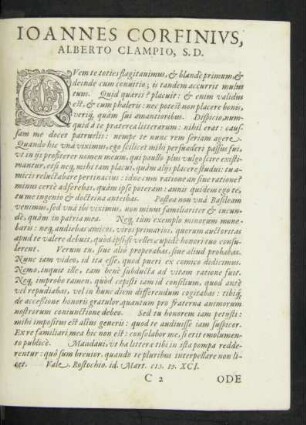 IOANNES CORFINIVS,
ALBERTO CLAMPIO, S. D.
QVem te toties flagitauimus, & blande primum, &
deinde cum conuitio; is tandem accurrit mimus
tuus. Quid quæris? placuit: & enim validum
est, & cum phaleris: nec potest non placere bonis,
verisq́, quàm suus amantioribus. Despicio, num-
quid à te præterea litterarum: nihil erat: caus-
sam me docet patruelis: nempe te nunc rem seriam agere.
Quando hic vnà viximus, ego scilicet mihi persuaderi passus sum,
vt in ijs profiterer nomen meum, qui paullo plus vulgo scire existi-
mantur, etsi neq, mihi tam placui, quàm alijs placere studui:
micis reluctabare pertinacius: idne cum ratione an sine ratione?
minus certè adferebas, quàm ipse poteram: annis quidem ego te,
tu me ingenio & doctrina anteibas. Postea non vnà Basileam
venimus, sed vnà ibi viximus, non minus familiariter & iucun-
dè, quàm in patria mea. Neq, tum exemplo minorum mone-
baris: neq, audiebas amicos, viros præclaros, quorum auctoritas
apud te valere debuit, quod ipsis & vellent, & cupide honori tuo consu-
lerent. Verum tu, siue alio properabas, siue aliud probabas.
Nunc tam video, id ita esse, quod puer ex comœdo didicimus,
Nemo, inquit ille, tam bene subducta ad vitam ratione fuit.
Neq, improbo tamen, quod cepisti tam id consilium, quod ante
vel repudiabas, vel in hunc diem differendum cogitabas: tibiq́,
de accessione honoris gratulor, quantum pro fraterna animorum
nostrorum coniunctione debeo. Sed tu honorem tam perosti:
mihi impositum est alius generis: quod te audiuisse iam suspicer.
Ex re familiari mea hic non est: consolabor me, si erit emolumen-
to publicè. Mandaui, vt ha litteræ tibi in ista pompa redde-
rentur: quò sum breuior, quando te pluribus interpellare non li-
cet. Vale, Rostochio. id. Mart. cIɔ. Iɔ. XCI.
C 2 ODE